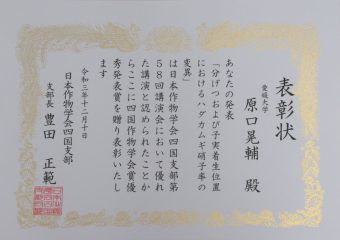 表彰状
愛媛大学
原口晃輔 殿
あなたの発表
「分げつおよび子実着生位置
におけるハダカムギ硝子率の
変異」
は日本作物学会四国支部第
58回講演会において優れ
た講演と認められたことか
らここに四国作物学会賞優
秀発表賞を贈り表彰いたし
ます
令和三年十二月十日
日本作物学会四国支部
支部長 豊田 正範